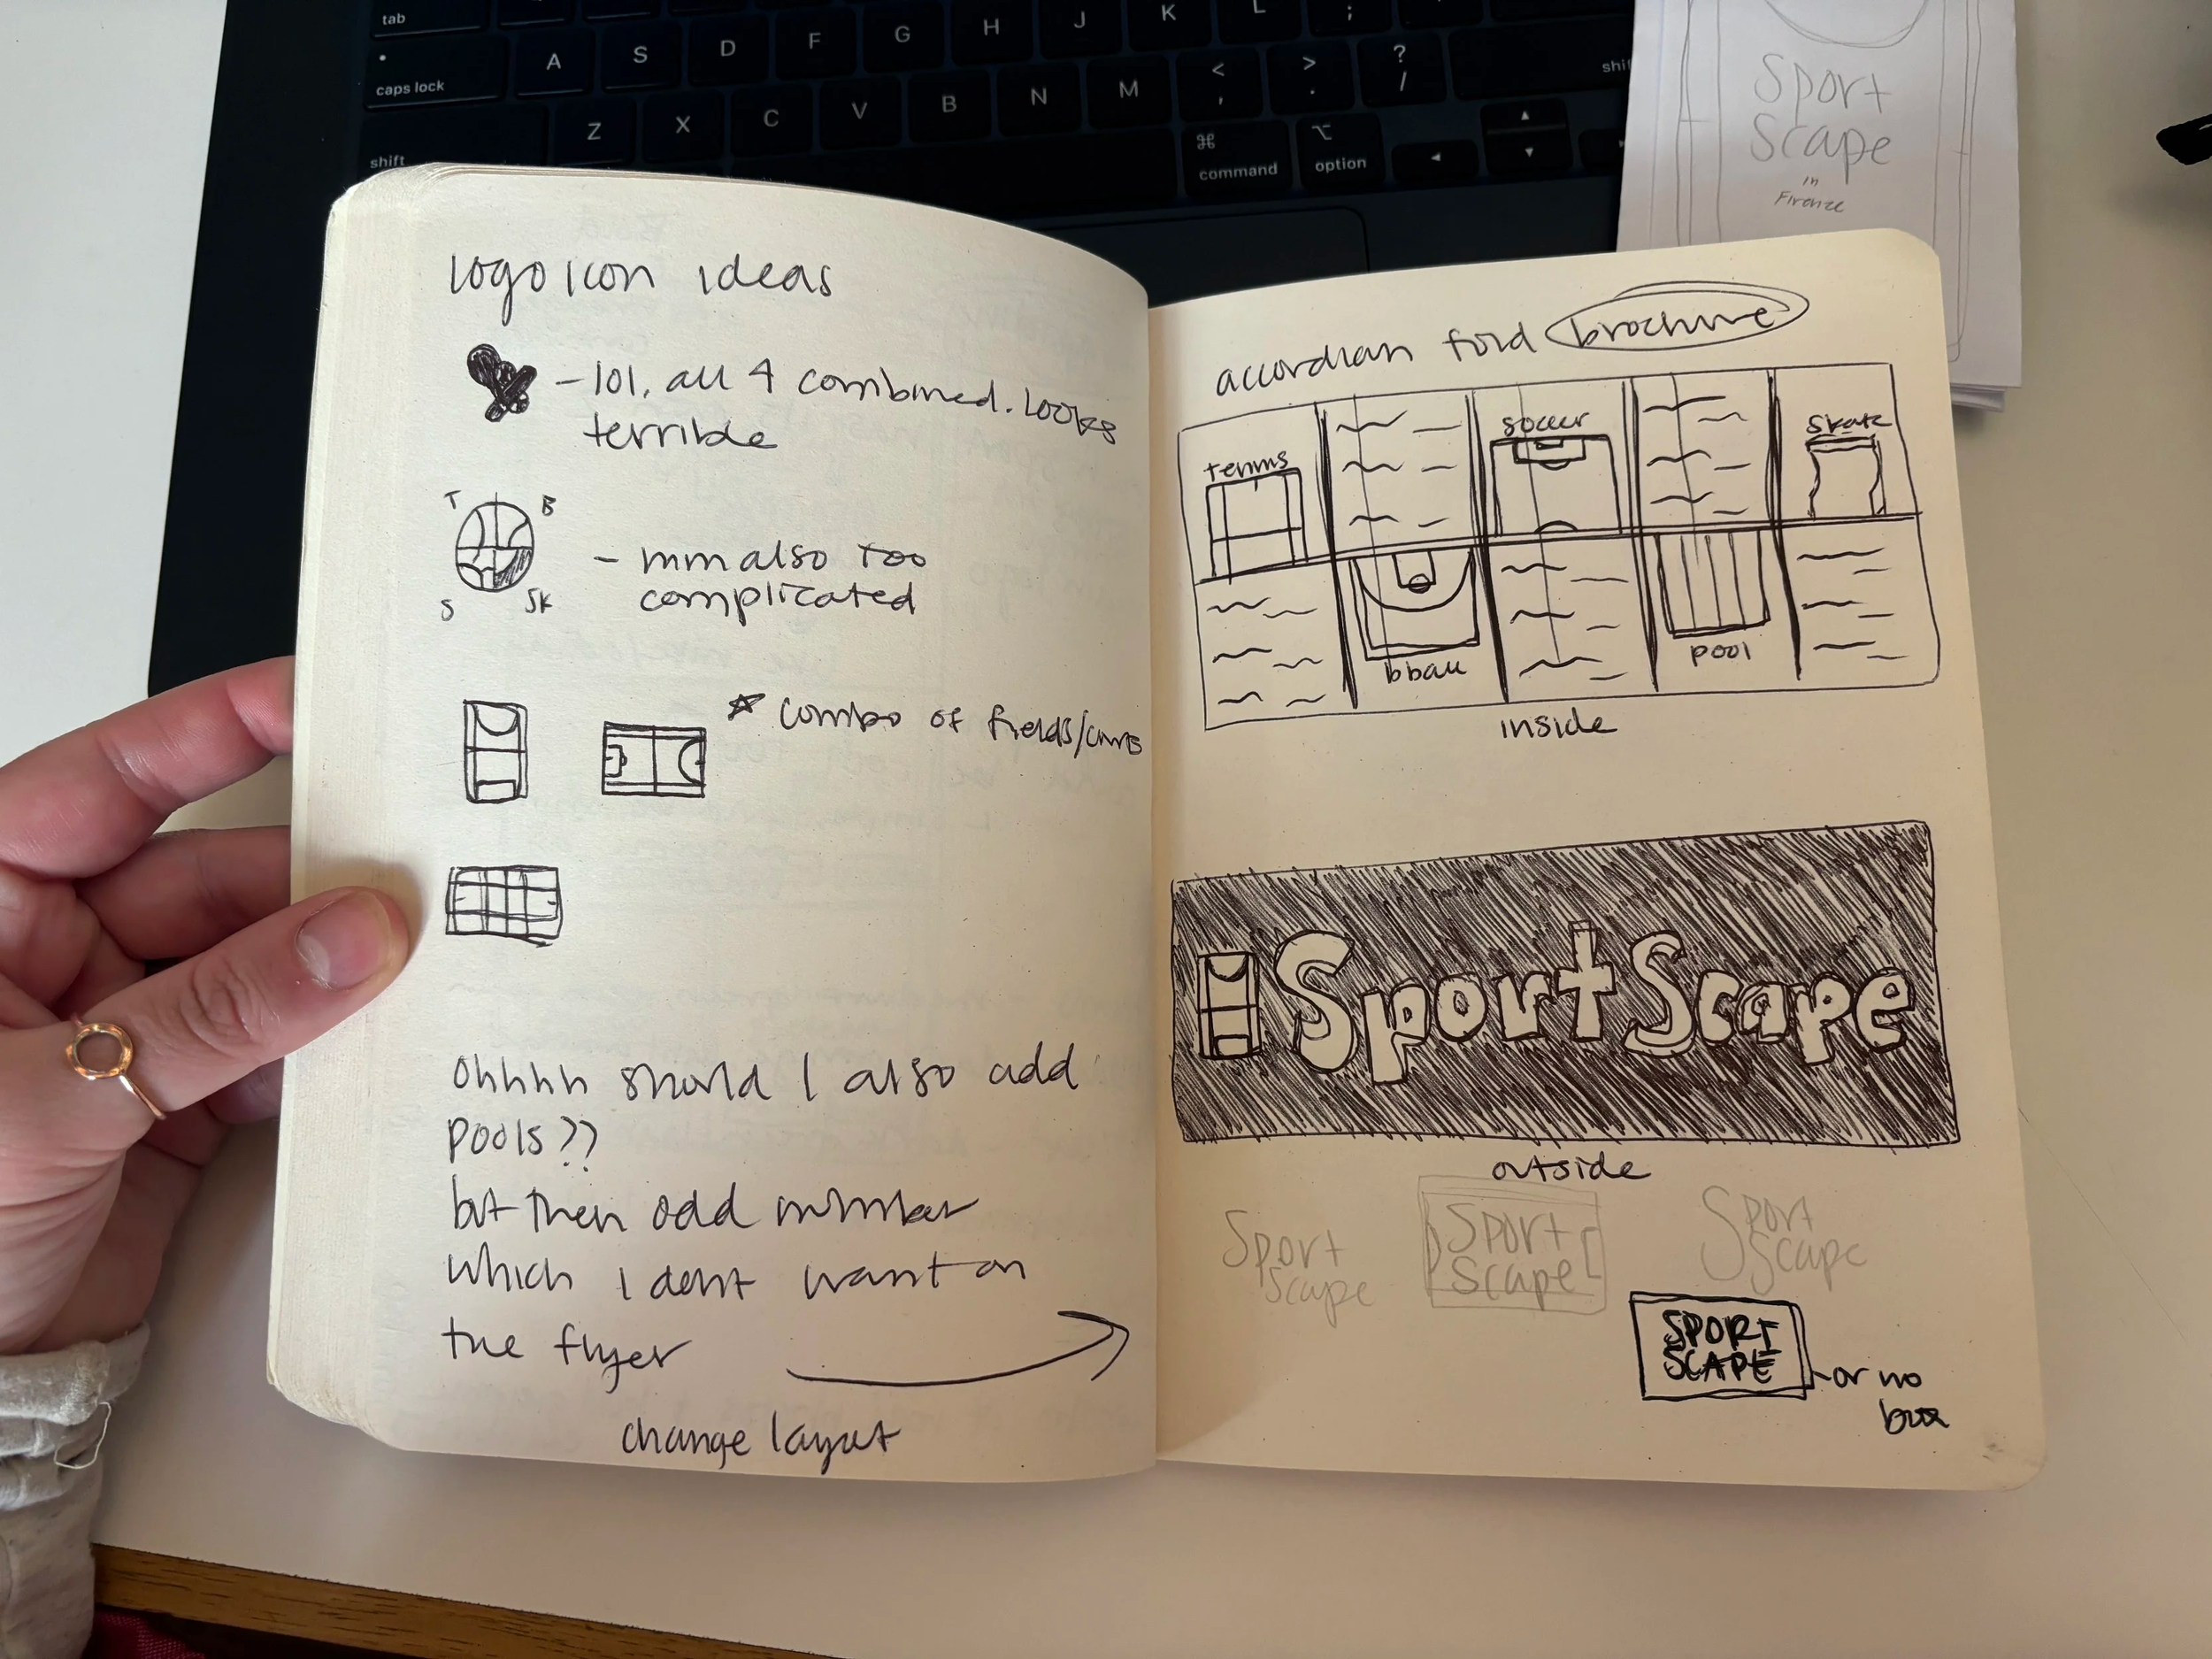 tab
caps lock
shift
A S D F G H J K L ;
Z X C V B N M < , > . ? /
shif
⌘
command
⌥
option
Sport
Scape
in
Firenze
logo icon ideas
- lol, all 4 combined. Looks
terrible
T B
S SK
- mm also too
complicated
combo of fields/
Ohhhh should I also add
pools??
but then odd number
which I dont want on
the flyer
change layout
accordian fold brochure
tennis
soccer
skate
bball
pool
inside
SportScape
outside
Sport
Scape
Sport
Scape
Sport
Scape
SPORT
SCAPE
- or no
box